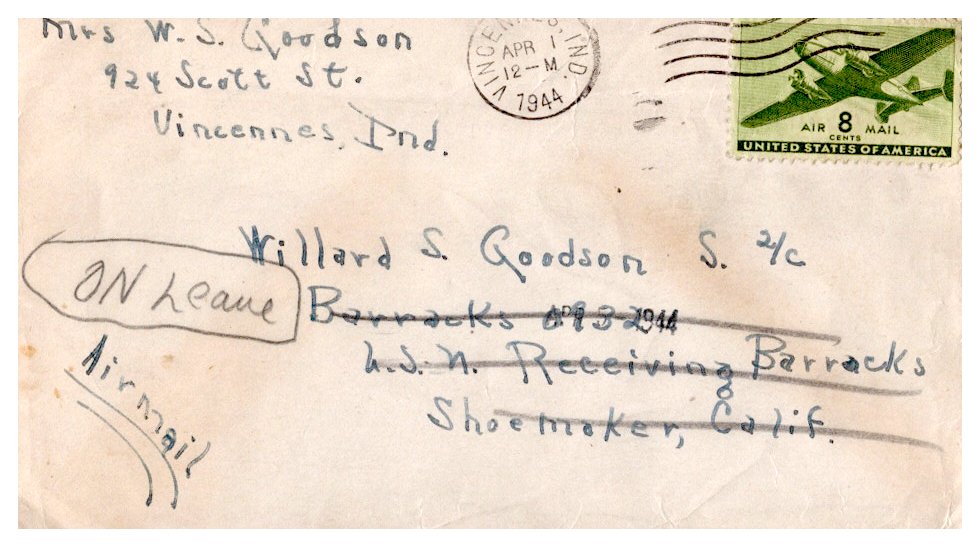 Mrs W. S. Goodson
924 Scott St.
Vincennes, Ind.
VINCENNES IND.
APR 1
12-M
1944
AIR 8 MAIL
CENTS
UNITED STATES OF AMERICA
Willard S. Goodson S. 2/c
ON Leave
Barracks 1944
U.S.N. Receiving Barracks
Shoemaker, Calif.
Air mail